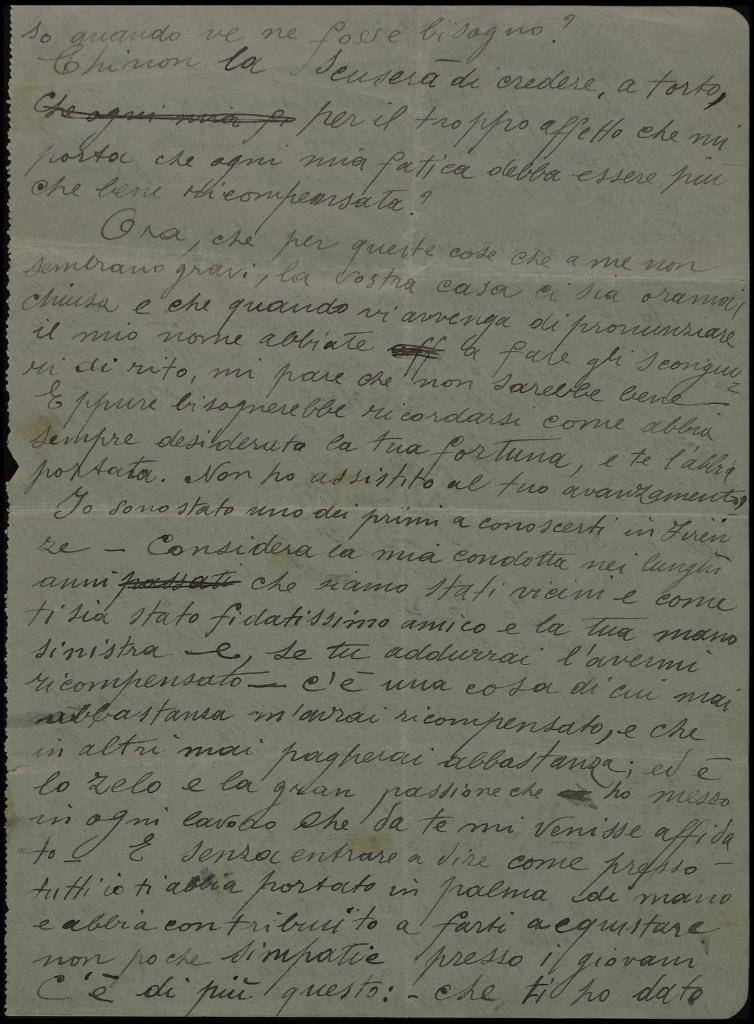 so quando ve ne fosse bisogno?
Chi non la scuserà di credere, a torto,
che ogni mia f. per il troppo affetto che mi
porta che ogni mia fatica debba essere più
che bene ricompensata?
Ora, che per queste cose che a me non
sembrano gravi, la vostra casa ci sia oramai
chiusa e che quando vi avvenga di pronunziare
il mio nome abbiate aff a fare gli scongiu-
ri di rito, mi pare che non sarebbe bene —
Eppure bisognerebbe ricordarsi come abbia
sempre desiderata la tua fortuna, e te l'abbia
portata. Non ho assistito al tuo avanzamento?
Io sono stato uno dei primi a conoscerti in Firen
ze — Considera la mia condotta nei lunghi
anni passati che siamo stati vicini e come
ti sia stato fidatissimo amico e la tua mano
sinistra — e, se tu addurrai l'avermi
ricompensato — c'è una cosa di cui mai
abbastanza m'avrai ricompensato, e che
in altri mai pagherai abbastanza; ed è
lo zelo e la gran passione che ho messo
in ogni lavoro che da te mi venisse affida
to — E senza entrare a dire come presso
tutti io ti abbia portato in palma di mano
e abbia contribuito a farti acquistare
non poche simpatie presso i giovani
C'è di più questo: - che ti ho dato